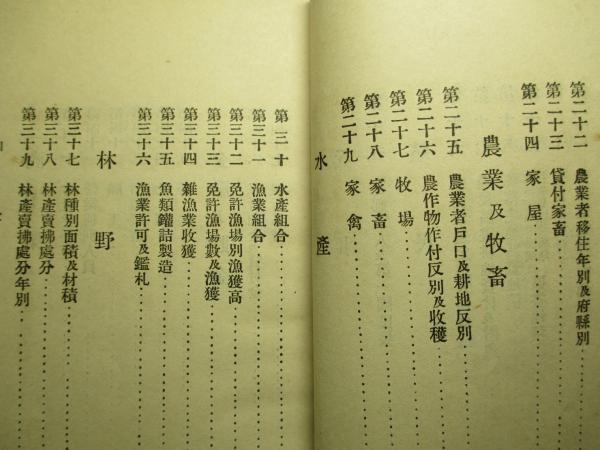 第二十二 農業者移住年別及府縣別
第二十三 貸付家畜
第二十四 家屋
農業及牧畜
第二十五 農業者戸口及耕地反別
第二十六 農作物作付反別及收穫
第二十七 牧場
第二十八 家畜
第二十九 家禽
水產
第三十 水產組合
第三十一 漁業組合
第三十二 免許漁場別漁獲高
第三十三 免許漁場數及漁獲
第三十四 雜漁業收獲
第三十五 魚類鑵詰製造
第三十六 漁業許可及鑑札
林野
第三十七 林種別面積及材積
第三十八 林產賣拂處分
第三十九 林產賣拂處分年別